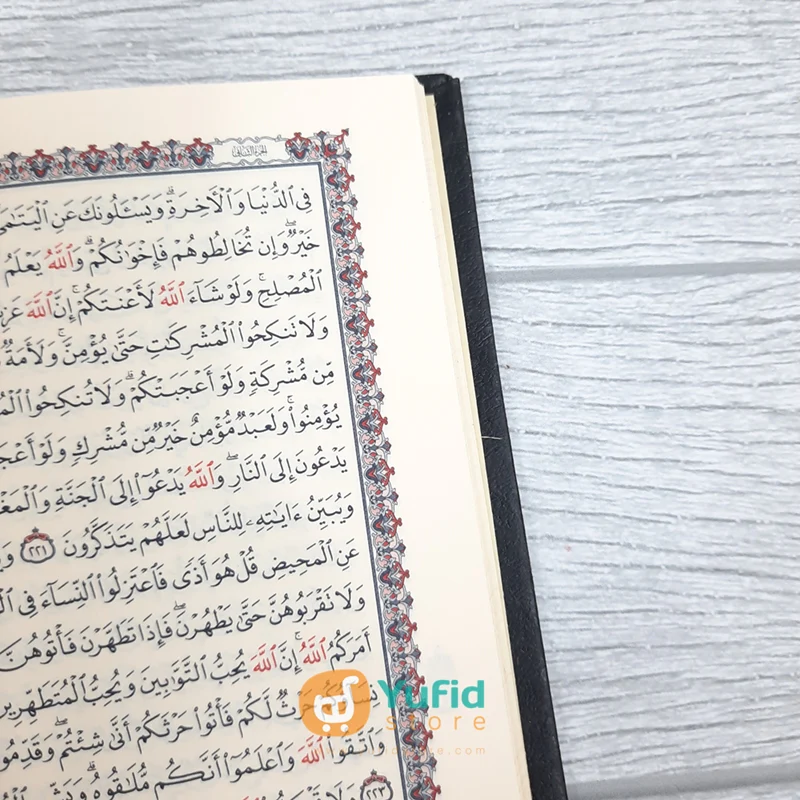 الجزء الثاني
فِى الدُّنْيَا وَالْآخِرَةِ ۗ وَيَسْـَٔلُونَكَ عَنِ الْيَتَٰمَىٰ
خَيْرٌ ۖ وَإِن تُخَالِطُوهُمْ فَإِخْوَٰنُكُمْ ۚ وَاللَّهُ يَعْلَمُ
الْمُصْلِحِ ۚ وَلَوْ شَآءَ اللَّهُ لَأَعْنَتَكُمْ ۚ إِنَّ اللَّهَ
وَلَا تَنكِحُوا۟ الْمُشْرِكَٰتِ حَتَّىٰ يُؤْمِنَّ ۚ وَلَأَمَةٌ
مِّن مُّشْرِكَةٍ وَلَوْ أَعْجَبَتْكُمْ ۗ وَلَا تُنكِحُوا۟
يُؤْمِنُوا۟ ۚ وَلَعَبْدٌ مُّؤْمِنٌ خَيْرٌ مِّن مُّشْرِكٍ وَلَوْ
يَدْعُونَ إِلَى النَّارِ ۖ وَاللَّهُ يَدْعُوٓا۟ إِلَى الْجَنَّةِ
وَيُبَيِّنُ ءَايَٰتِهِۦ لِلنَّاسِ لَعَلَّهُمْ يَتَذَكَّرُونَ ٢٢١
عَنِ الْمَحِيضِ قُلْ هُوَ أَذًى فَاعْتَزِلُوا۟ النِّسَآءَ فِى
وَلَا تَقْرَبُوهُنَّ حَتَّىٰ يَطْهُرْنَ ۖ فَإِذَا تَطَهَّرْنَ فَأْتُوهُنَّ
أَمَرَكُمُ اللَّهُ ۚ إِنَّ اللَّهَ يُحِبُّ التَّوَّٰبِينَ وَيُحِبُّ الْمُتَطَهِّرِينَ
نِسَآؤُكُمْ حَرْثٌ لَّكُمْ فَأْتُوا۟ حَرْثَكُمْ أَنَّىٰ شِئْتُمْ ۖ وَقَدِّمُوا۟
وَاتَّقُوا۟ اللَّهَ وَاعْلَمُوٓا۟ أَنَّكُم مُّلَٰقُوهُ ۗ وَبَشِّرِ
٢٢٣ وَلَا
Yufid
store